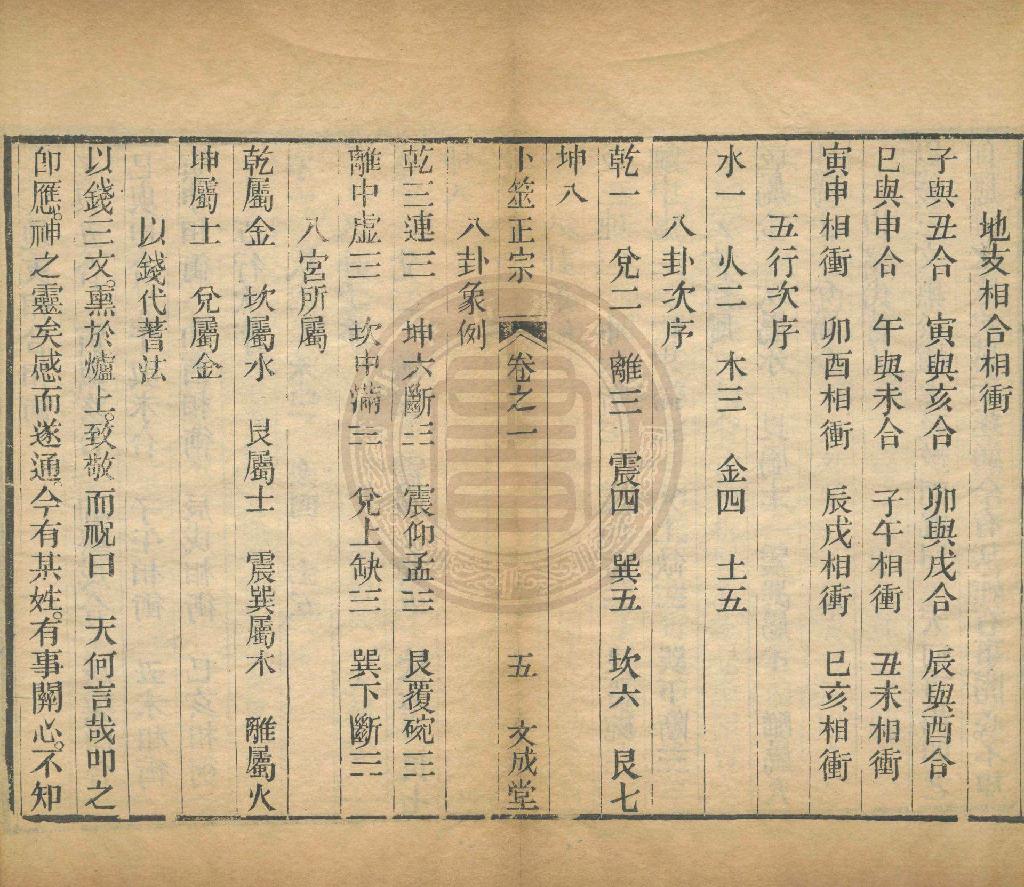 地支相合相衝
子與丑合　寅與亥合　卯與戌合　辰與酉合
巳與申合　午與未合　子午相衝　丑未相衝
寅申相衝　卯酉相衝　辰戌相衝　巳亥相衝
五行次序
水一　火二　木三　金四　土五
八卦次序
乾一　兌二　離三　震四　巽五　坎六　艮七
坤八
卜筮正宗　卷之一　五　文成堂
八卦象例
乾三連☰　坤六斷☷　震仰盂☳　艮覆碗☶
離中虛☲　坎中滿☵　兌上缺☱　巽下斷☴
八宮所屬
乾屬金　坎屬水　艮屬土　震巽屬木　離屬火
坤屬土　兌屬金
以錢代蓍法
以錢三文。熏於爐上。致敬而祝曰　天何言哉叩之
卽應。神之靈矣感而遂通今有某姓。有事關心。不知